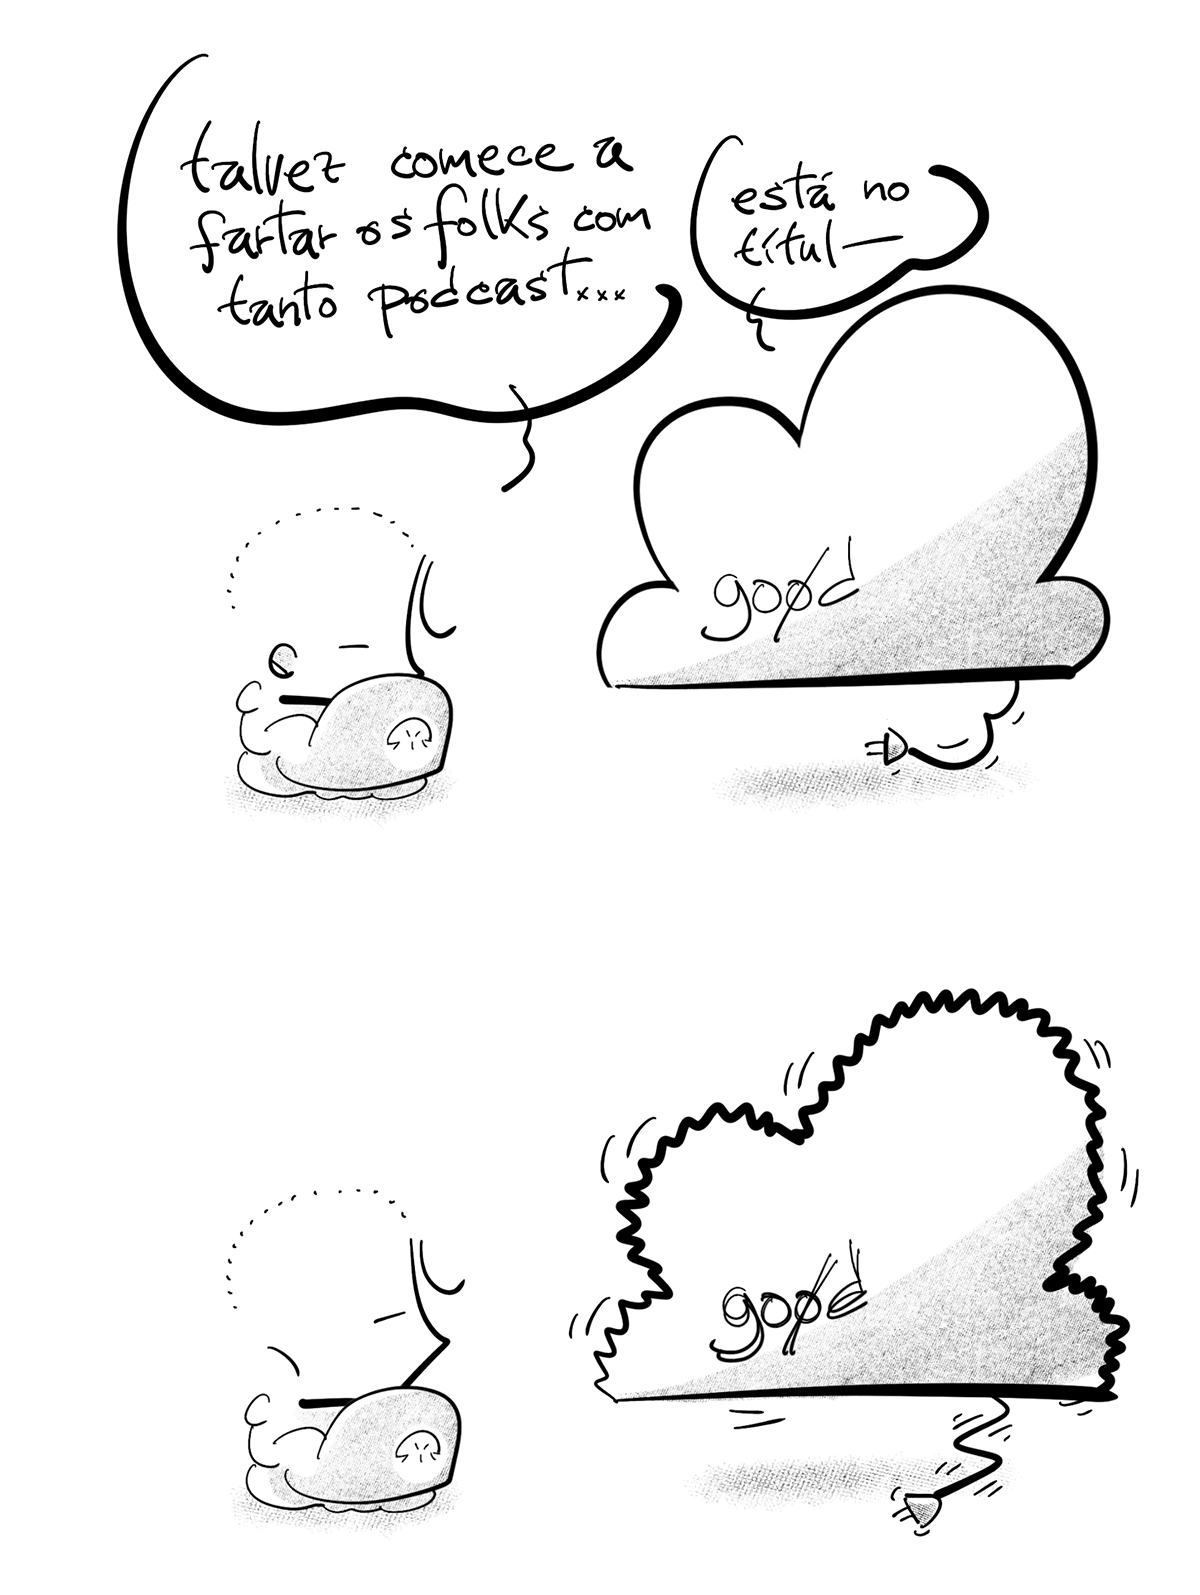 talvez comece a
fartar os folks com
tanto podcast...
está no
títul—
good
good